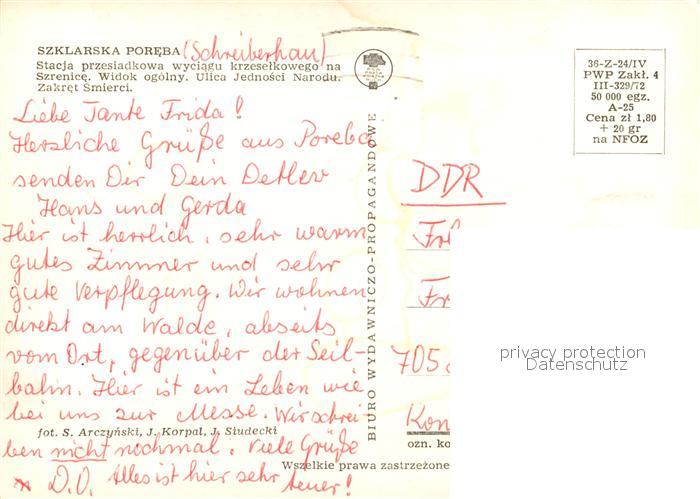 SZKLARSKA PORĘBA (Schreiberhau)
Stacja przesiadkowa wyciągu krzesełkowego na
Szrenicę. Widok ogólny. Ulica Jedności Narodu.
Zakręt Śmierci.
Liebe Tante Frida!
Herzliche Grüße aus Poreba
senden Dir Dein Detlev
Hans und Gerda
Hier ist herrlich, sehr warm
gutes Zimmer und sehr
gute Verpflegung. Wir wohnen
direkt am Walde, abseits
vom Ort, gegenüber der Seil-
bahn. Hier ist ein Leben wie
bei uns zur Messe. Wir schrei-
fot. S. Arczyński, J. Korpal, J. Siudecki
ben nicht nochmal. Viele Grüße
D.O. Alles ist hier sehr teuer!
BIURO WYDAWNICZO-PROPAGANDOWE
36-Z-24/IV
PWP Zakł. 4
III-329/72
50 000 egz.
A-25
Cena zł 1,80
+ 20 gr
na NFOZ
DDR
Fr
705
Kon
ozn. ko
Wszelkie prawa zastrzeżone
privacy protection
Datenschutz